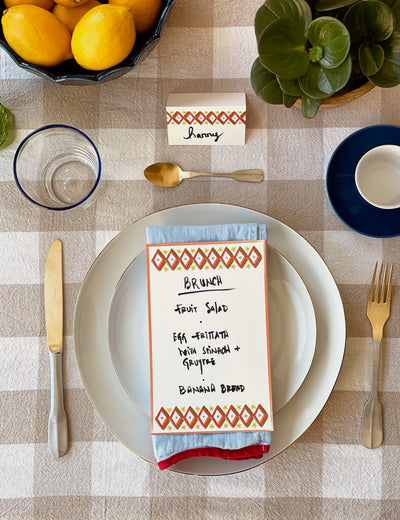 harry
BRUNCH
FRUIT SALAD
EGG FRITTATH
WITH SPINACH +
GRUYERE
BANANA BREAD